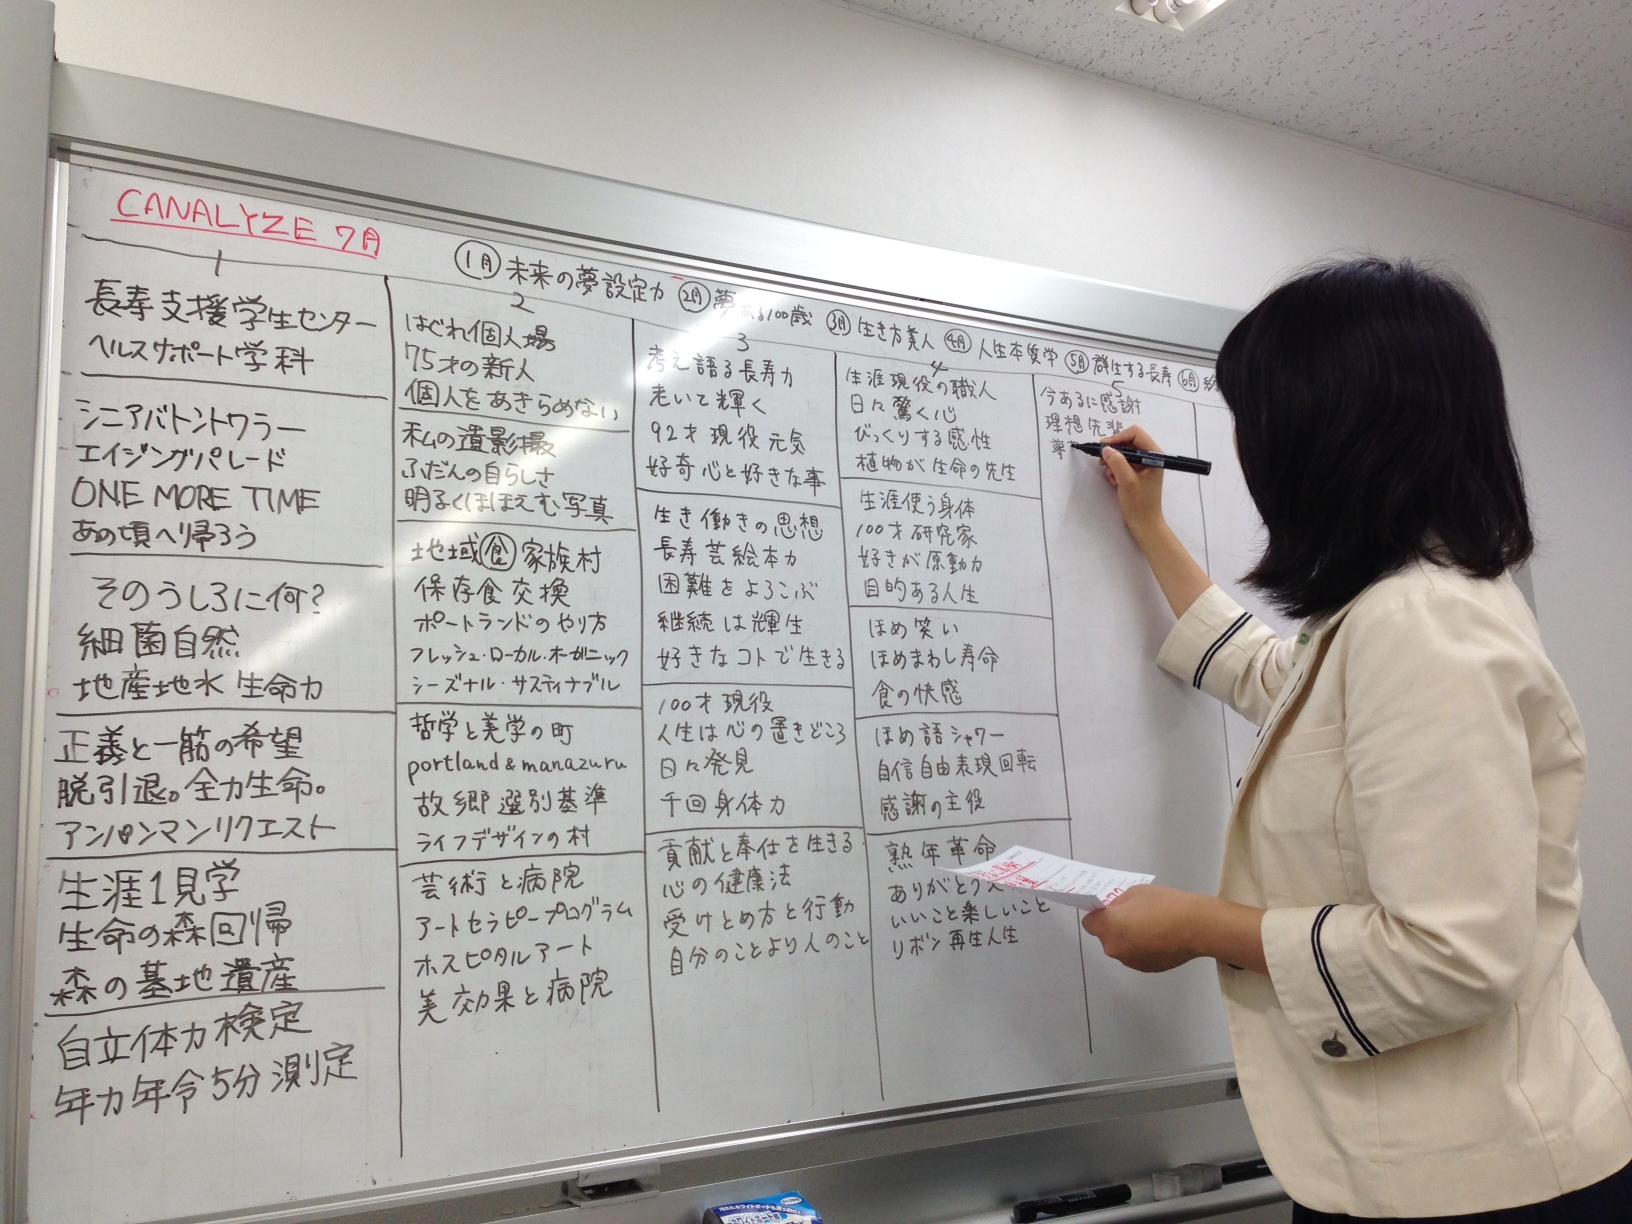 CANALYZE 7月
1月 未来の夢設定力 2月 夢ある100歳 3月 生き方美人 4月 人生本質学 5月 群生する長寿 6月
1
長寿支援学生センター
ヘルスサポート学科
シニアバトントワラー
エイジングパレード
ONE MORE TIME
あの頃へり帰ろう
そのうしろに何?
細菌自然
地産地水 生命力
正義と一筋の希望
脱引退。全力生命。
アンパンマンリクエスト
生涯1見学
生命の森回帰
森の基地遺産
自立体力検定
年力年令5分測定
2
はぐれ個人場
75才の新人
個人をあきらめない
私の遺影撮
ふだんの自らしさ
明るくほほえむ写真
地域食家族村
保存食交換
ポートランドのやり方
フレッシュ・ローカル・オーガニック
シーズナル・サスティナブル
哲学と美学の町
portland & manazuru
故郷選別基準
ライフデザインの村
芸術と病院
アートセラピープログラム
ホスピタルアート
美効果と病院
3
考え語る長寿力
老いて輝く
92才現役元気
好奇心と好きな事
生き働きの思想
長寿芸絵本力
困難をよろこぶ
継続は輝生
好きなコトで生きる
100才現役
人生は心の置きどころ
日々発見
千回身体力
貢献と奉仕を生きる
心の健康法
受けとめ方と行動
自分のことより人のこと
4
生涯現役の職人
日々驚く心
びっくりする感性
植物が生命の先生
生涯使う身体
100才研究家
好きが原動力
目的ある人生
ほめ笑い
ほめまわし寿命
食の快感
ほめ語シャワー
自信自由表現回転
感謝の主役
熟年革命
ありがとう
いいこと楽しいこと
リボン再生人生
5
今あるに感謝
理想先輩